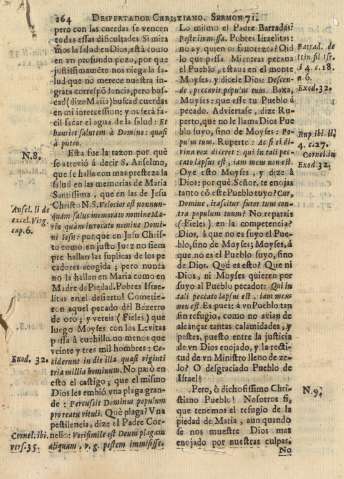 264 DESPERTADOR CHRISTIANO. SERMON 71.
pero con las cuerdas se vencen
todas essas dificultades. Si mira-
mos la salud en Dios, està como
en vn profundo pozo, por que
justissimamẽte nos niega la sa-
lud que no merece nuestra in-
grata correspõdencia; pero bus-
cad (dize Maria) buscad cuerdas
en mi intercession; y os serà fa-
cil sacar el agua de la salud: Et
hauriet salutem à Domino: quasi
à puteo.
N.8. Esta fue la razon por què
se atreviò à decir S. Anselmo,
que se halla con mas presteza la
salud en las memorias de Maria
Santissima, que en las de Jesu
Christo N. S. Velocior est nonnun-
quam salus memorato nomine Ma-
riæ quàm invocato nomine Domi-
ni Iesu: porque en Jesu Chris-
to como en justo Juez no siem-
pre hallan las suplicas de los pe-
cadores acogida; pero nunca
no la hallan en Maria como en
Madre de Piedad. Pobres Israe-
litas en el desierto! Cometie-
ron aquel pecado del Bezerro
de oro; y vereis (Fieles) que
luego Moyses con los Levitas
passa à cuchillo no menos que
veinte y tres mil hombres: Ce-
cideruntque in die illa quasi viginti
tria millia hominum. No parò en
esto el castigo; que el mismo
Dios les embiò vna plaga gran-
de: Percussit Dominus populum
pro reatu vituli. Què plaga? Vna
pestilencia; dize el Padre Cor-
nelio: Verisimile est Deum plagam
aliquam, v. g. pestem immisisse.
Ansel. li. de
excel. Virg.
cap. 6.
Exod. 32.
Cornel. ibi.
vers. 35.
Lo mismo el Padre Barradas:
Peste immissa. Pobres Israelitas:
no ay quien os favorezca? Oid
lo que passa. Mientras pecava
el Pueblo, estava en el monte
Moyses, y dizele Dios: Descen-
de, peccavit populus tuus. Baxa,
Moyses: que esse tu Pueblo à
pecado. Advertencia: dize Ru-
perto, que no le llama Dios Pue-
blo suyo, sino de Moyses: Po-
pulum tuum. Ruperto: Ac si di-
vina vox diceret: qui in tali pec-
cato lapsus est, iam meus non est.
Oye esto Moyses, y dize à
Dios: por què Señor, te enojas
tanto cõ este Pueblo tuyo? Cur,
Domine, irascitur furor tuus con-
tra populum tuum? No reparais
(Fieles) en la competencia?
Dios, à que no es suyo el Pue-
blo, sino de Moyses; Moyses, à
que no es el Pueblo suyo, sino
de Dios. Què es esto? Que ni
Dios, ni Moyses quieren por
suyo al Pueblo pecador: Qui in
tali peccato lapsus est, iam meus
non est. Es pues: à vn Pueblo tan
sin refugio, como no avian de
alcançar tantas calamidades, y
pestes, puesto entre la justicia
de vn Dios enojado, y la recti-
tud de vn Ministro lleno de ze-
lo? O desgraciado Pueblo de
Israel!
Pero, ò dichosissimo Chris-
tiano Pueblo! Nosotros si,
que tenemos el refugio de la
piedad de Maria, aun quando
se nos muestre Dios mas
enojado por nuestras culpas.
No
Barrad. de
Exod. 32.
Rup. ibi. lib.
4. c. 27.
Exod. 32.
N.9.